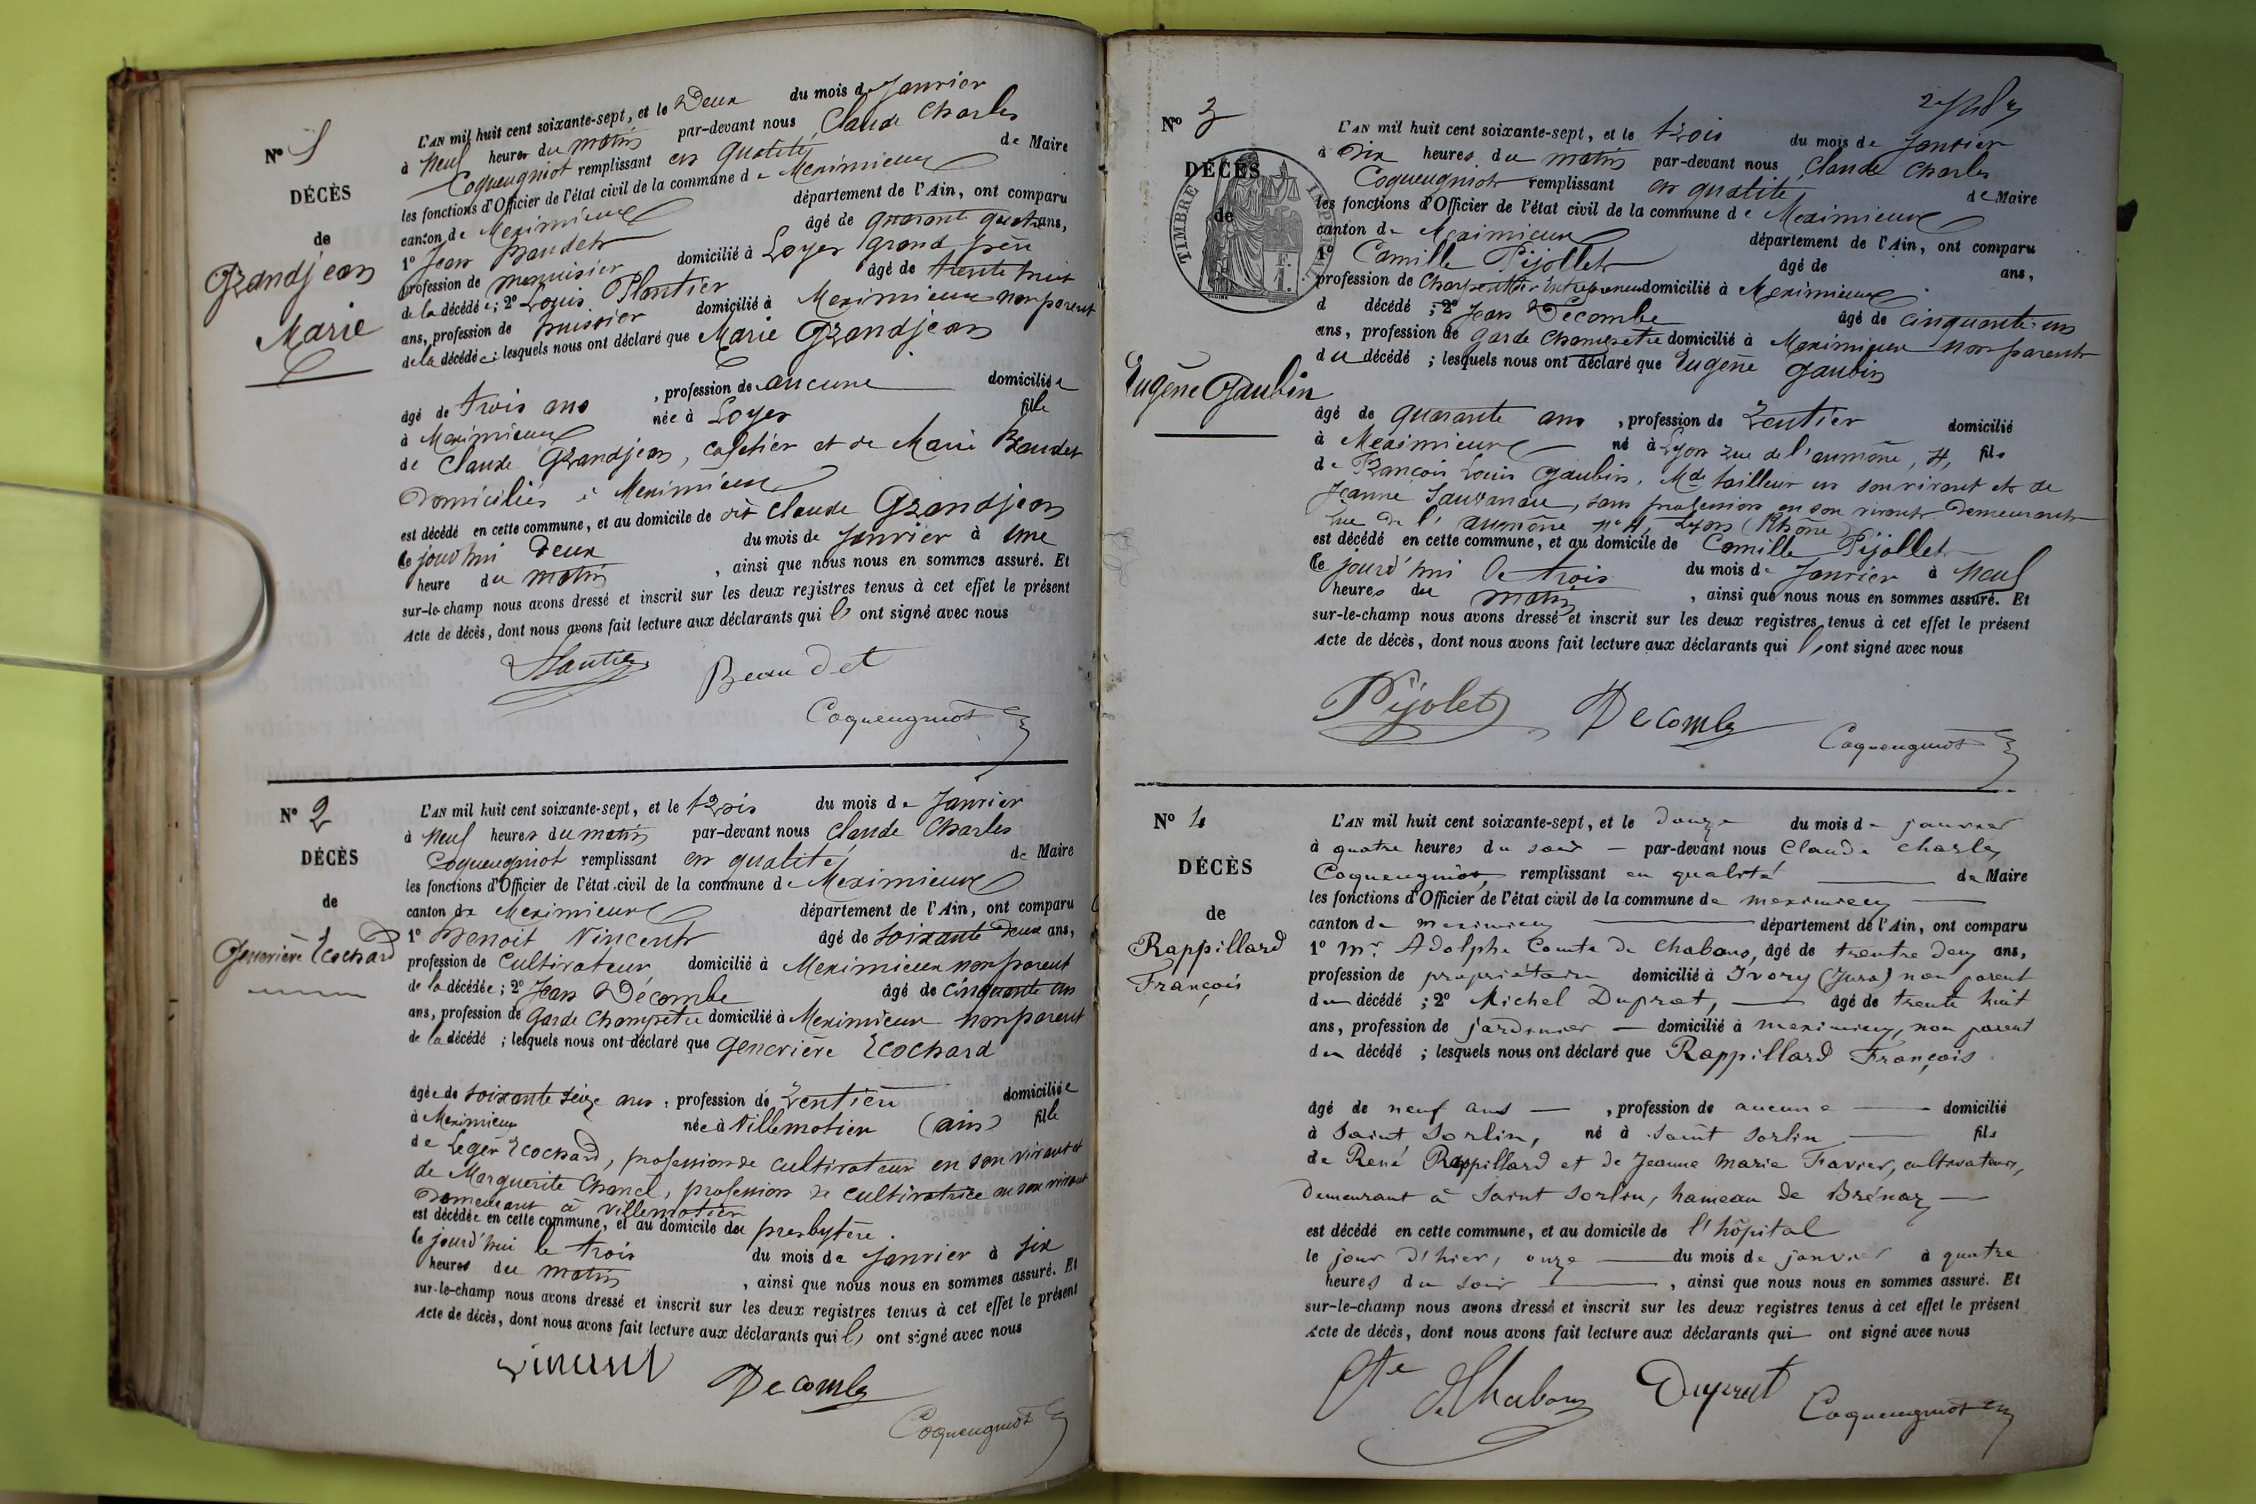 N° 1
DÉCÈS
de
Grandjean
Marie
L'AN mil huit cent soixante-sept, et le Deux du mois de Janvier
à Neuf heures du matin par-devant nous Claude Charles
Coqueugniot remplissant en qualité de Maire
les fonctions d'Officier de l'état civil de la commune de Meximieux
canton de Meximieux département de l'Ain, ont comparu
1° Jean Baudet âgé de quarante quatre ans,
profession de menuisier domicilié à Loyes grand père
de la décédée ; 2° Louis Plantier âgé de trente huit
ans, profession de huissier domicilié à Meximieux non parent
de la décédée ; lesquels nous ont déclaré que Marie Grandjean
âgé de trois ans , profession de aucune domiciliée
à Meximieux née à Loyes fille
de Claude Grandjean, cafetier et de Marie Baudet
Domiciliés à Meximieux
est décédé en cette commune, et au domicile de dit Claude Grandjean
le jourd'hui Deux du mois de Janvier à une
heure du matin , ainsi que nous nous en sommes assuré. Et
sur-le-champ nous avons dressé et inscrit sur les deux registres tenus à cet effet le présent
Acte de décès, dont nous avons fait lecture aux déclarants qui ls ont signé avec nous
Plantier Beaudet
Coqueugniot
N° 2
DÉCÈS
de
Genevière Ecochard
L'AN mil huit cent soixante-sept, et le trois du mois de Janvier
à Neuf heures du matin par-devant nous Claude Charles
Coqueugniot remplissant en qualité de Maire
les fonctions d'Officier de l'état civil de la commune de Meximieux
canton de Meximieux département de l'Ain, ont comparu
1° Benoit Vincent âgé de soixante Deux ans,
profession de Cultivateur domicilié à Meximieux non parent
de la décédée ; 2° Jean Décombe âgé de cinquante un
ans, profession de Garde Champetre domicilié à Meximieux non parent
de la décédé ; lesquels nous ont déclaré que Genevière Ecochard
âgée de soixante seize ans , profession de Rentière domiciliée
à Meximieux née à Villemotier (ain) fille
de Leger Ecochard, profession de cultivateur en son vivant et
de Marguerite Chanel, profession de cultivatrice en son vivant
Demeurant à Villemotier
est décédée en cette commune, et au domicile du presbytère.
le jourd'hui le trois du mois de Janvier à six
heures du matin , ainsi que nous nous en sommes assuré. Et
sur-le-champ nous avons dressé et inscrit sur les deux registres tenus à cet effet le présent
Acte de décès, dont nous avons fait lecture aux déclarants qui ls ont signé avec nous
Vincent Decombe
Coqueugniot
N° 3
DÉCÈS
de
TIMBRE IMPERIAL
F.
1.
Eugène Gaubin
L'AN mil huit cent soixante-sept, et le trois du mois de Janvier
à Dix heures du matin par-devant nous Claude Charles
Coqueugniot remplissant en qualité de Maire
les fonctions d'Officier de l'état civil de la commune de Meximieux
canton de Meximieux département de l'Ain, ont comparu
1° Camille Pijollet âgé de ans,
profession de Charpentier Entrepreneur domicilié à Meximieux
d décédé ; 2° Jean Décombe âgé de cinquante un
ans, profession de Garde Champetre domicilié à Meximieux non parent
du décédé ; lesquels nous ont déclaré que Eugène Gaubin
âgé de quarante ans , profession de Rentier domicilié
à Meximieux né à Lyon rue de l'aumône, 4, fils
de François Louis Gaubin, Md tailleur en son vivant et de
Jeanne , sans profession en son vivant Demeurant
rue de l'aumône n° 4, Lyon (Rhône)
est décédé en cette commune, et au domicile de Camille Pijollet
le jourd'hui le trois du mois de Janvier à Neuf
heures du matin , ainsi que nous nous en sommes assuré. Et
sur-le-champ nous avons dressé et inscrit sur les deux registres tenus à cet effet le présent
Acte de décès, dont nous avons fait lecture aux déclarants qui ls ont signé avec nous
Pijolet Decombe
Coqueugniot
N° 4
DÉCÈS
de
Rappillard
François
L'AN mil huit cent soixante-sept, et le douze du mois de janvier
à quatre heures du soir par-devant nous Claude Charles
Coqueugniot, remplissant en qualité de Maire
les fonctions d'Officier de l'état civil de la commune de meximieux
canton de meximieux département de l'Ain, ont comparu
1° Mr. Adolphe Comte de Chabons, âgé de trentre deux ans,
profession de propriétaire domicilié à Ivory (Jura) non parent
du décédé ; 2° Michel Duprat, âgé de trente huit
ans, profession de jardinier domicilié à meximieux, non parent
du décédé ; lesquels nous ont déclaré que Rappillard François
âgé de neuf ans , profession de aucune domicilié
à Saint Sorlin, né à Saint Sorlin fils
de René Rappillard et de Jeanne Marie Favier, cultivateurs,
demeurant à Saint Sorlin, hameau de Brénaz
est décédé en cette commune, et au domicile de l'hôpital
le jour d'hier, onze du mois de janvier à quatre
heures du soir , ainsi que nous nous en sommes assuré. Et
sur-le-champ nous avons dressé et inscrit sur les deux registres tenus à cet effet le présent
Acte de décès, dont nous avons fait lecture aux déclarants qui ont signé avec nous
Cte de Chabons Duprat Coqueugniot